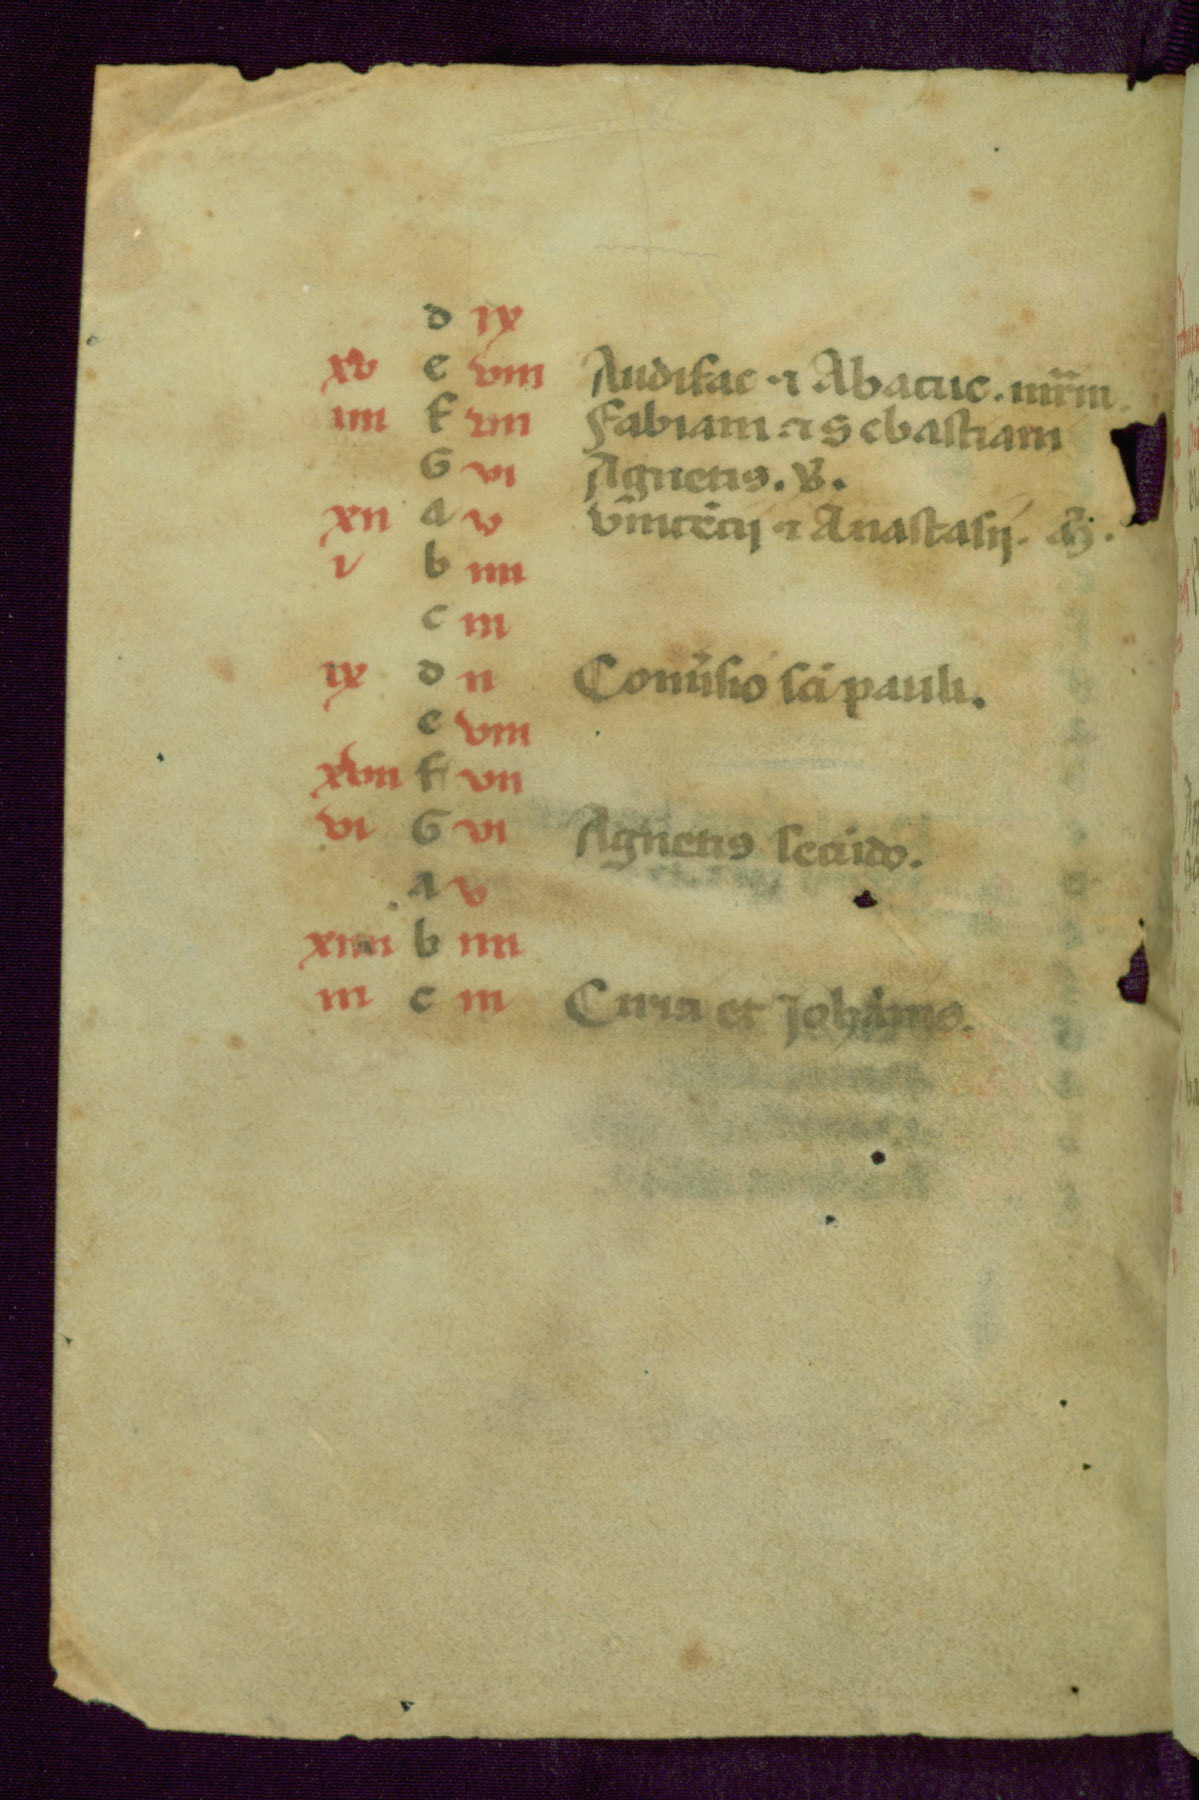 d ix
xv e viii Audifac ⁊ Abacuc. mr̄m.
iiii f viii Fabiani ⁊ Sebastiani
G vi Agnetis. v̄.
xii a v vīnicēcij ⁊ Anastasij.
v b iiii
c iii
ix d ii Conūsio sc̄i pauli.
e viii
xvii f vii
vi G vi Agnetis secūdo.
a v
xiiii b iiii
iii c iii Ciria et Johānis.